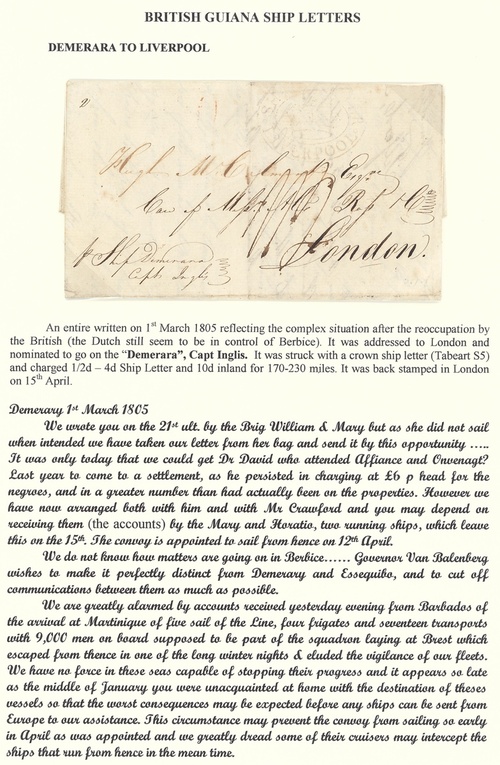 BRITISH GUIANA SHIP LETTERS
DEMERARA TO LIVERPOOL
2
LIVERPOOL
Hugh Esqre
Care of Ross & Co
London.
p Ship Demerara
Captn Inglis
An entire written on 1st March 1805 reflecting the complex situation after the reoccupation by
the British (the Dutch still seem to be in control of Berbice). It was addressed to London and
nominated to go on the "Demerara", Capt Inglis. It was struck with a crown ship letter (Tabeart S5)
and charged 1/2d – 4d Ship Letter and 10d inland for 170-230 miles. It was back stamped in London
on 15th April.
Demerary 1st March 1805
We wrote you on the 21st ult. by the Brig William & Mary but as she did not sail
when intended we have taken our letter from her bag and send it by this opportunity …..
It was only today that we could get Dr David who attended Affiance and Onwenagt?
Last year to come to a settlement, as he persisted in charging at £6 p head for the
negroes, and in a greater number than had actually been on the properties. However we
have now arranged both with him and with Mr Crawford and you may depend on
receiving them (the accounts) by the Mary and Horatio, two running ships, which leave
this on the 15th. The convoy is appointed to sail from hence on 12th April.
We do not know how matters are going on in Berbice…… Governor Van Balenberg
wishes to make it perfectly distinct from Demerary and Essequibo, and to cut off
communications between them as much as possible.
We are greatly alarmed by accounts received yesterday evening from Barbados of
the arrival at Martinique of five sail of the Line, four frigates and seventeen transports
with 9,000 men on board supposed to be part of the squadron laying at Brest which
escaped from thence in one of the long winter nights & eluded the vigilance of our fleets.
We have no force in these seas capable of stopping their progress and it appears so late
as the middle of January you were unacquainted at home with the destination of theses
vessels so that the worst consequences may be expected before any ships can be sent from
Europe to our assistance. This circumstance may prevent the convoy from sailing so early
in April as was appointed and we greatly dread some of their cruisers may intercept the
ships that run from hence in the mean time.